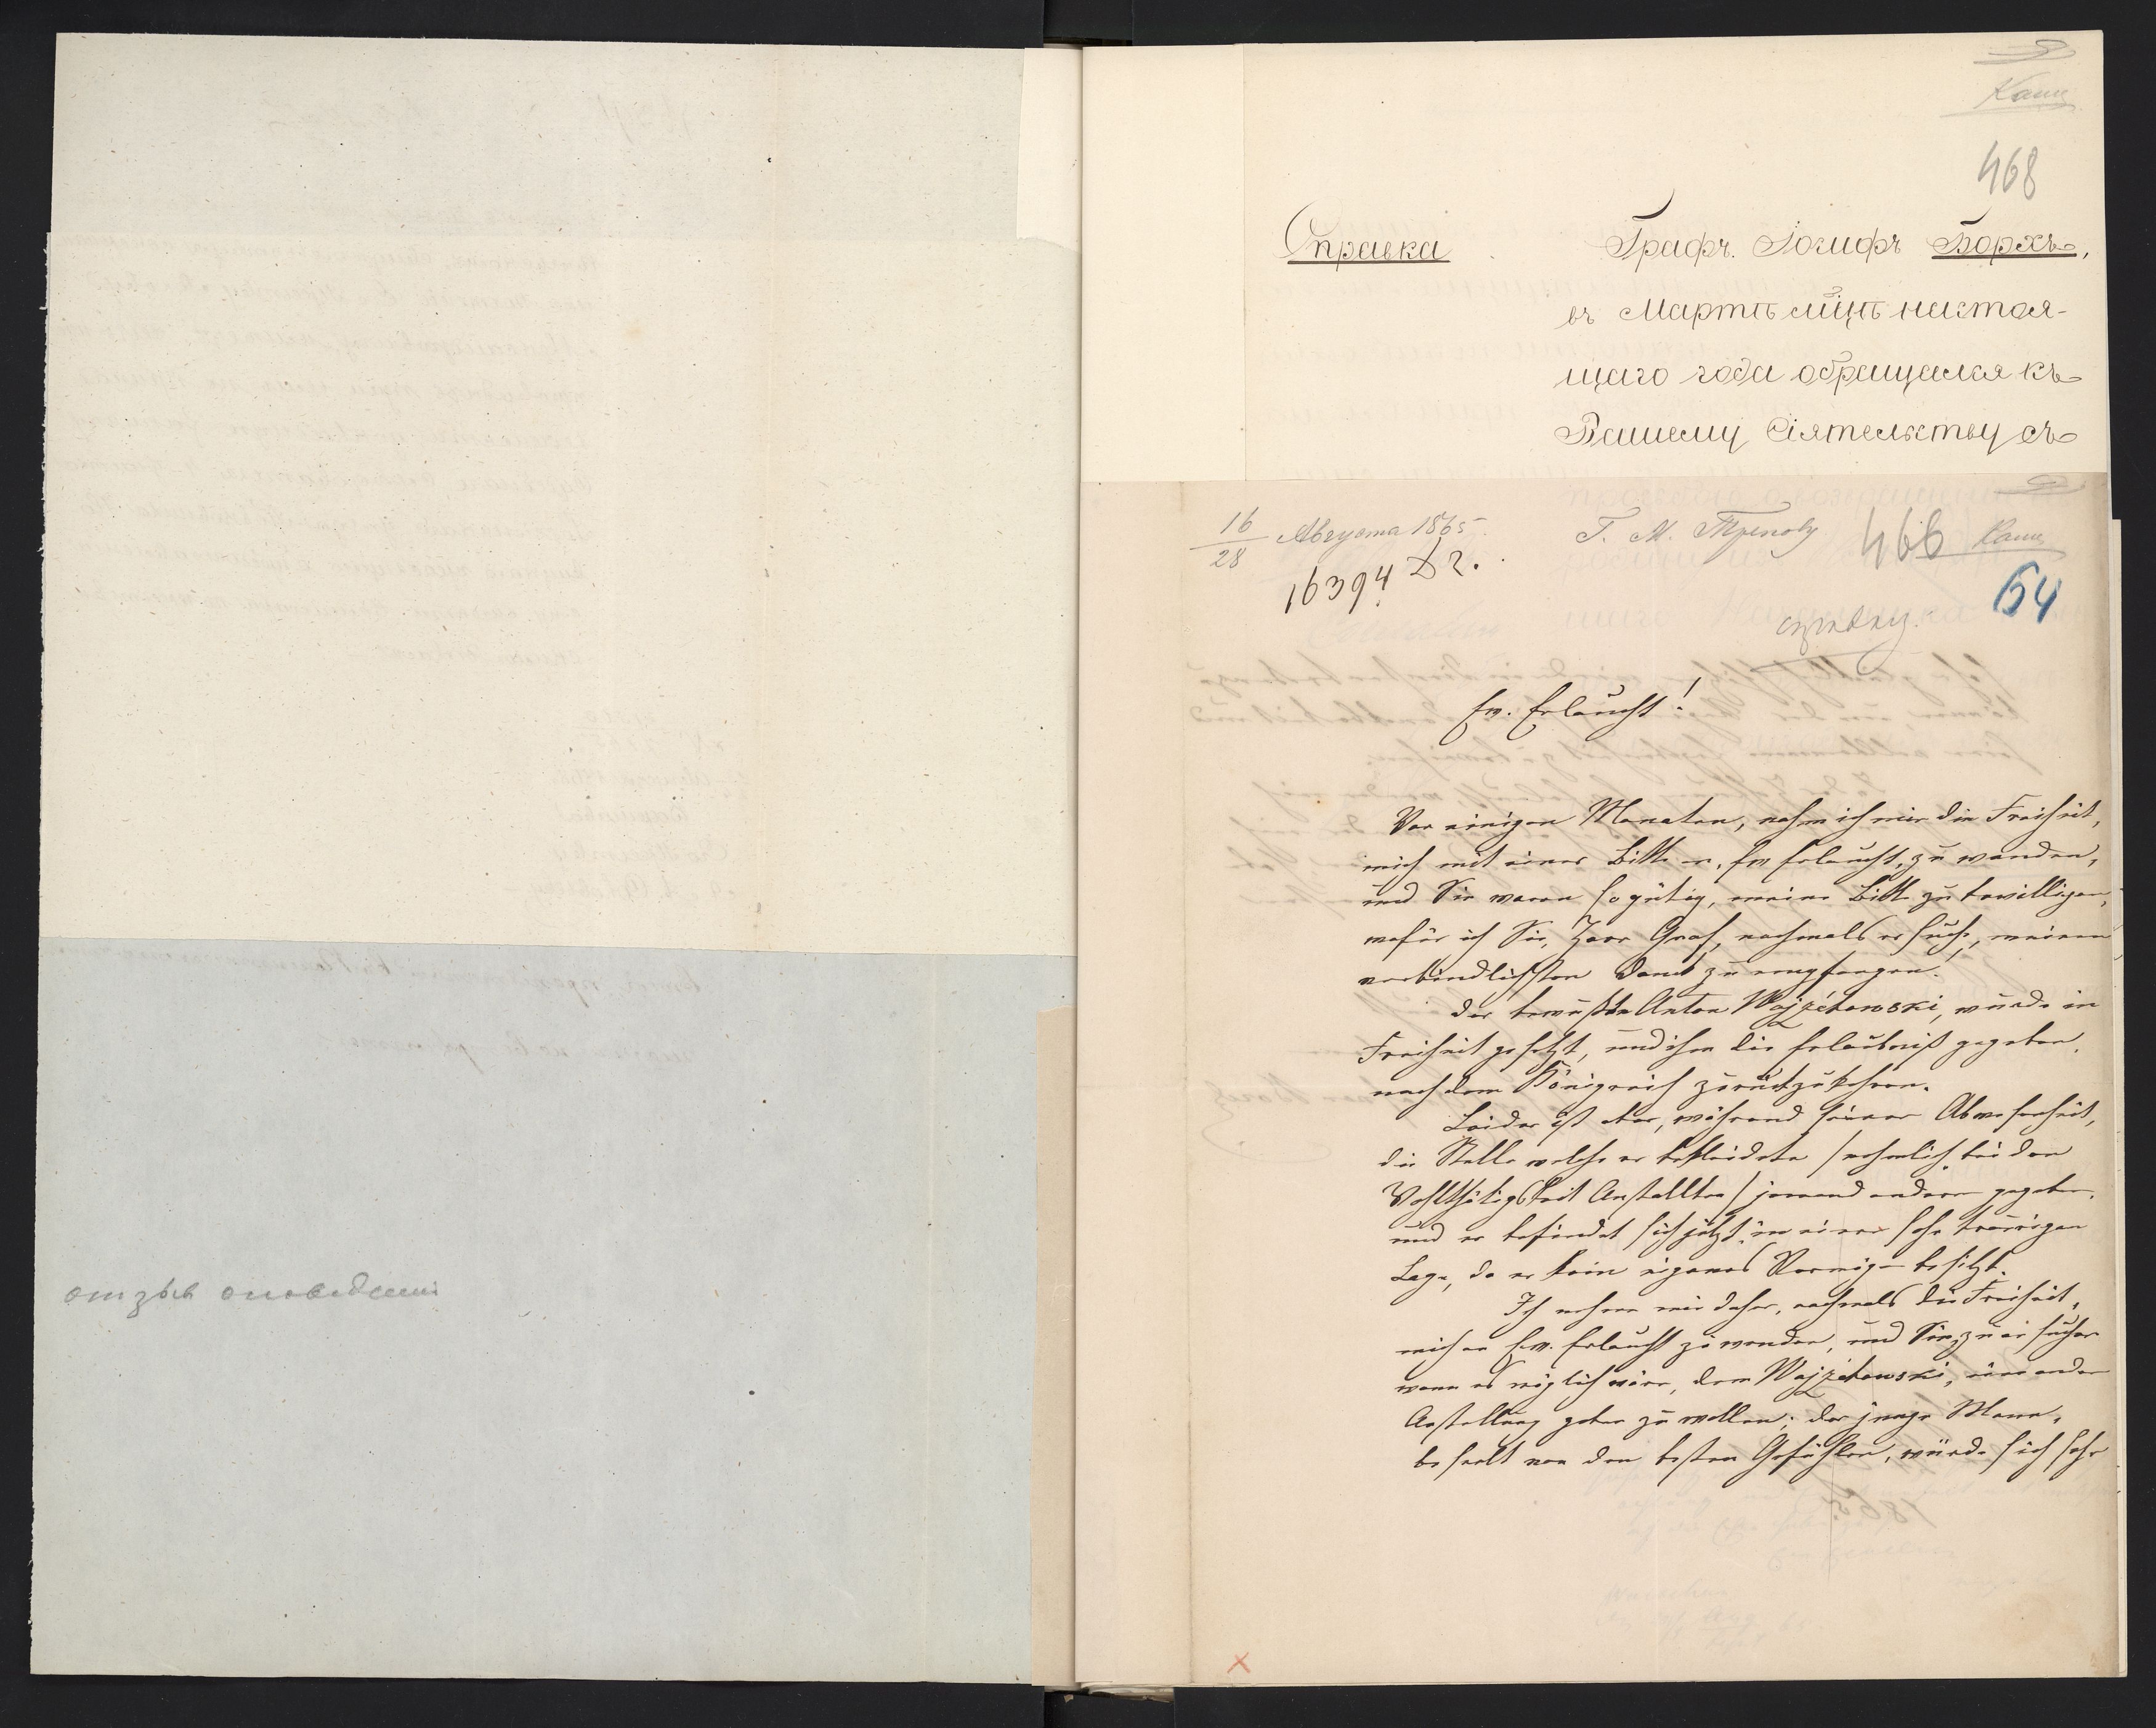 отзыв
468
Справка
Графъ Іосифъ Борхъ,
въ Мартѣ мцѣ настоя-
щаго года обращался къ
Вашему Сіятельству съ
16/28 Августа 1865
Г. М. Трепову
466
16394
54
справку
Ew. Erlaucht!
Vor einigen Monaten, nahm ich mir die Freiheit,
mich mit einer Bitte an Ew Erlaucht, zu wenden,
und Sie waren so gütig, meine Bitte zu bewilligen,
wofür ich Sie, Herr Graf, nochmals ersuche, meinen
verbindlichsten Dank zu empfangen.
Der bewußte Anton Wojzétowski, wurde in
Freiheit gesetzt, und ihm die Erlaubniß gegeben,
nach dem Königreich zurückzukehren.
Leider ist aber, während seiner Abwesenheit,
die Stelle welche er bekleidete / nehmlich bei den
Wohlthätigkeit Anstallten / jemand andern gegeben,
und er befindet sich jetzt in einer sehr traurigen
Lage, da er kein eigenes Vermögen besitzt.
Ich nehme mir daher, nochmals die Freiheit,
mich an Ew. Erlaucht zu wenden, und Sie, zu ersuchen
wenn es möglich wäre, dem Wojzétowski, eine andere
Anstellung geben zu wollen; der junge Mann,
beseelt von den besten Gefühlen, würde sich sehr